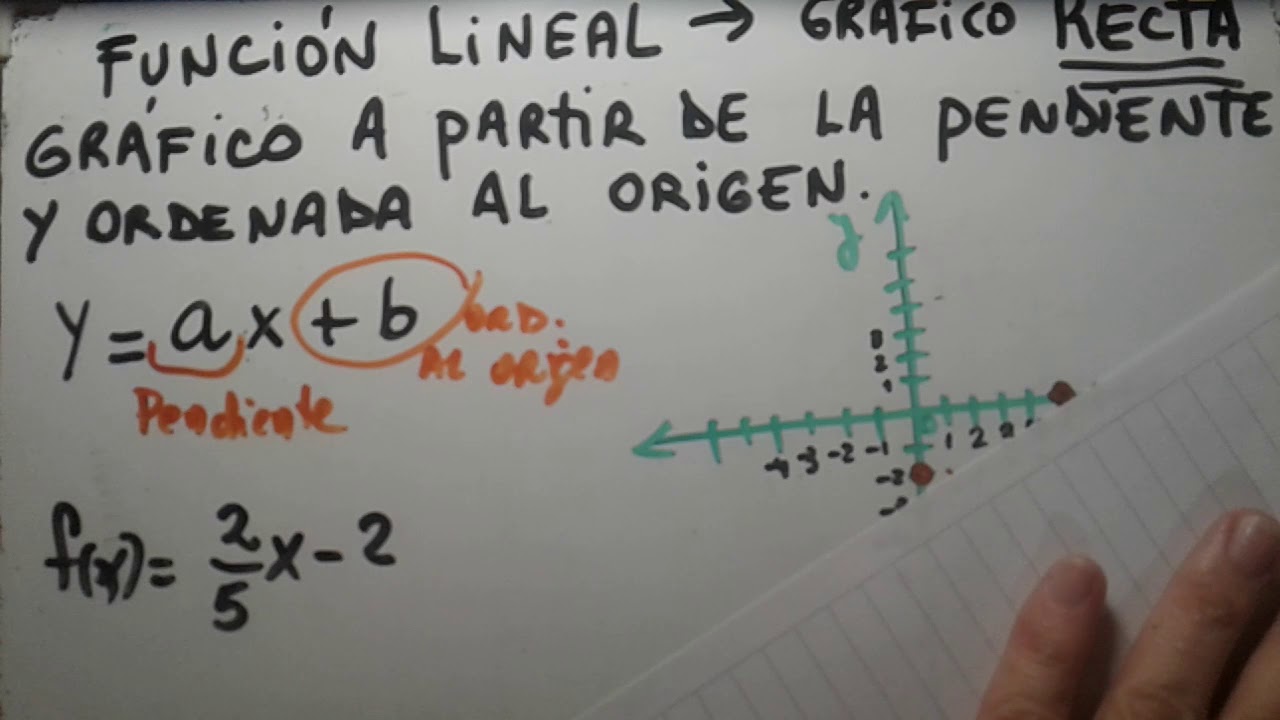 FUNCIÓN LINEAL → GRÁFICO RECTA
GRÁFICO A PARTIR DE LA PENDIENTE
Y ORDENADA AL ORIGEN.
y
y = ax + b
ORD.
AL origen
Pendiente
3
2
1
-4 -3 -2 -1 1 2 3
-2
f(x) = 2/5 x - 2